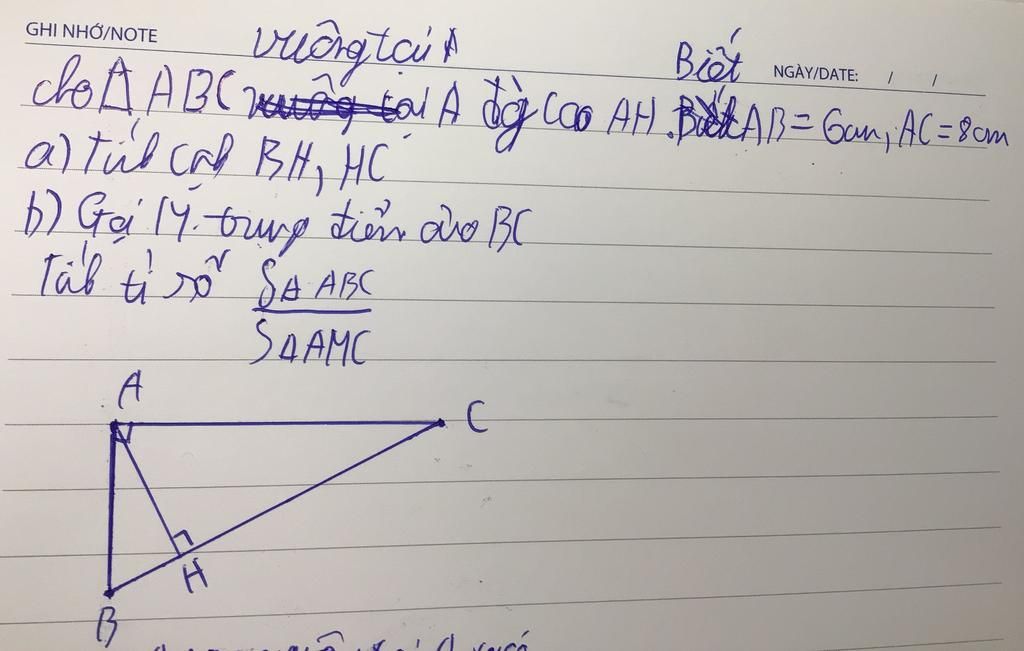 GHI NHỚ/NOTE
NGÀY/DATE: / /
vuông tại A Biết
cho Δ ABC A đg cao AH. AB = 6cm, AC = 8cm
a) Tính cạnh BH, HC
b) Gọi M trung điểm của BC
Tính tỉ số SΔABC
SΔAMC
A
C
H
B